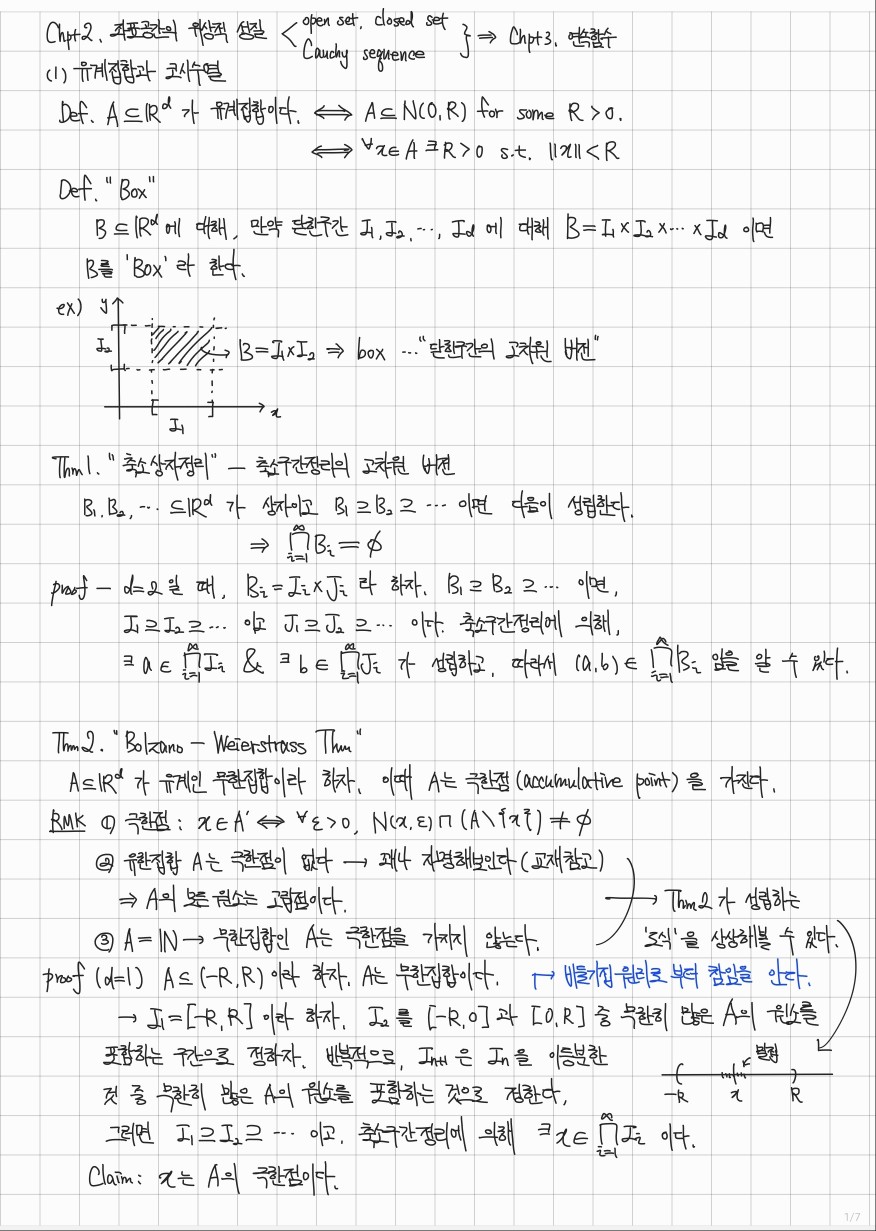 Chpt2. 좌표공간의 위상적 성질 < open set, closed set
Cauchy sequence } ⇒ Chpt3. 연속함수
(1) 유계집합과 코시수열
Def. A ⊆ ℝᵈ 가 유계집합이다. ⟺ A ⊆ N(0,R) for some R>0.
⟺ ∀x∈A ∃R>0 s.t. ||x||<R
Def. "Box"
B ⊆ ℝᵈ 에 대해, 만약 닫힌구간 I₁, I₂, ..., I_d 에 대해 B = I₁×I₂×...×I_d 이면
B를 'Box' 라 한다.
ex) y
I₂ B=I₁×I₂ ⇒ box ..."닫힌구간의 고차원 버전"
x
I₁
Thm1. "축소상자정리" — 축소구간정리의 고차원 버전
B₁, B₂, ... ⊆ℝᵈ 가 상자이고 B₁ ⊇ B₂ ⊇ ... 이면 다음이 성립한다.
⇒ ∩_{i=1}^∞ Bᵢ = ∅
proof — d=2 일 때, Bᵢ = Iᵢ×Jᵢ 라 하자. B₁ ⊇ B₂ ⊇ ... 이면,
I₁ ⊇ I₂ ⊇ ... 이고 J₁ ⊇ J₂ ⊇ ... 이다. 축소구간정리에 의해,
∃a ∈ ∩_{i=1}^∞ Iᵢ & ∃b ∈ ∩_{i=1}^∞ Jᵢ 가 성립하고, 따라서 (a,b) ∈ ∩_{i=1}^∞ Bᵢ 임을 알 수 있다.
Thm2. "Bolzano — Weierstrass Thm"
A⊆ℝᵈ 가 유계인 무한집합이라 하자. 이때 A는 극한점(accumulative point)을 가진다.
RMK ① 극한점 : x∈A' ⟺ ∀ε>0, N(x,ε)∩(A\{x}) ≠ ∅
② 유한집합 A는 극한점이 없다 → 꽤나 자명해보인다(교재참고)
⇒ A의 모든 원소는 고립점이다. → Thm2 가 성립하는
③ A=ℕ → 무한집합인 A는 극한점을 가지지 않는다. '도식'을 상상해볼 수 있다.
proof (d=1) A⊆(-R,R) 이라 하자. A는 무한집합이다. ↱ 비둘기집 원리로 부터 참임을 안다.
→ I₁=[-R,R] 이라 하자. I₂ 를 [-R,0] 과 [0,R] 중 무한히 많은 A의 원소를
포함하는 구간으로 정하자. 반복적으로, Iₙ₊₁ 은 Iₙ을 이등분한
것 중 무한히 많은 A의 원소를 포함하는 것으로 정한다.
-R x R
그러면 I₁ ⊇ I₂ ⊇ ... 이고, 축소구간정리에 의해 ∃x∈ ∩_{i=1}^∞ Iᵢ 이다.
Claim: x는 A의 극한점이다.
1/7